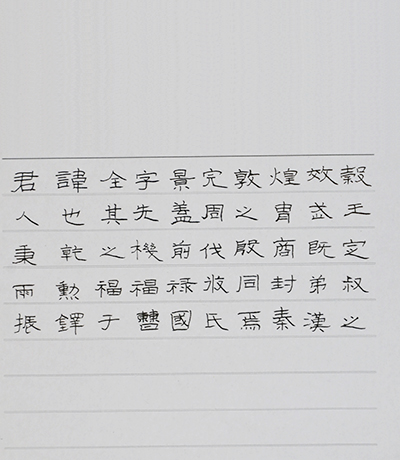 君諱全字景完敦煌效穀
人也其先蓋周之胄武王
秉乾之機翦伐殷商既定
爾勳福福祿攸同封弟叔
振鐸于曹國氏焉秦漢之